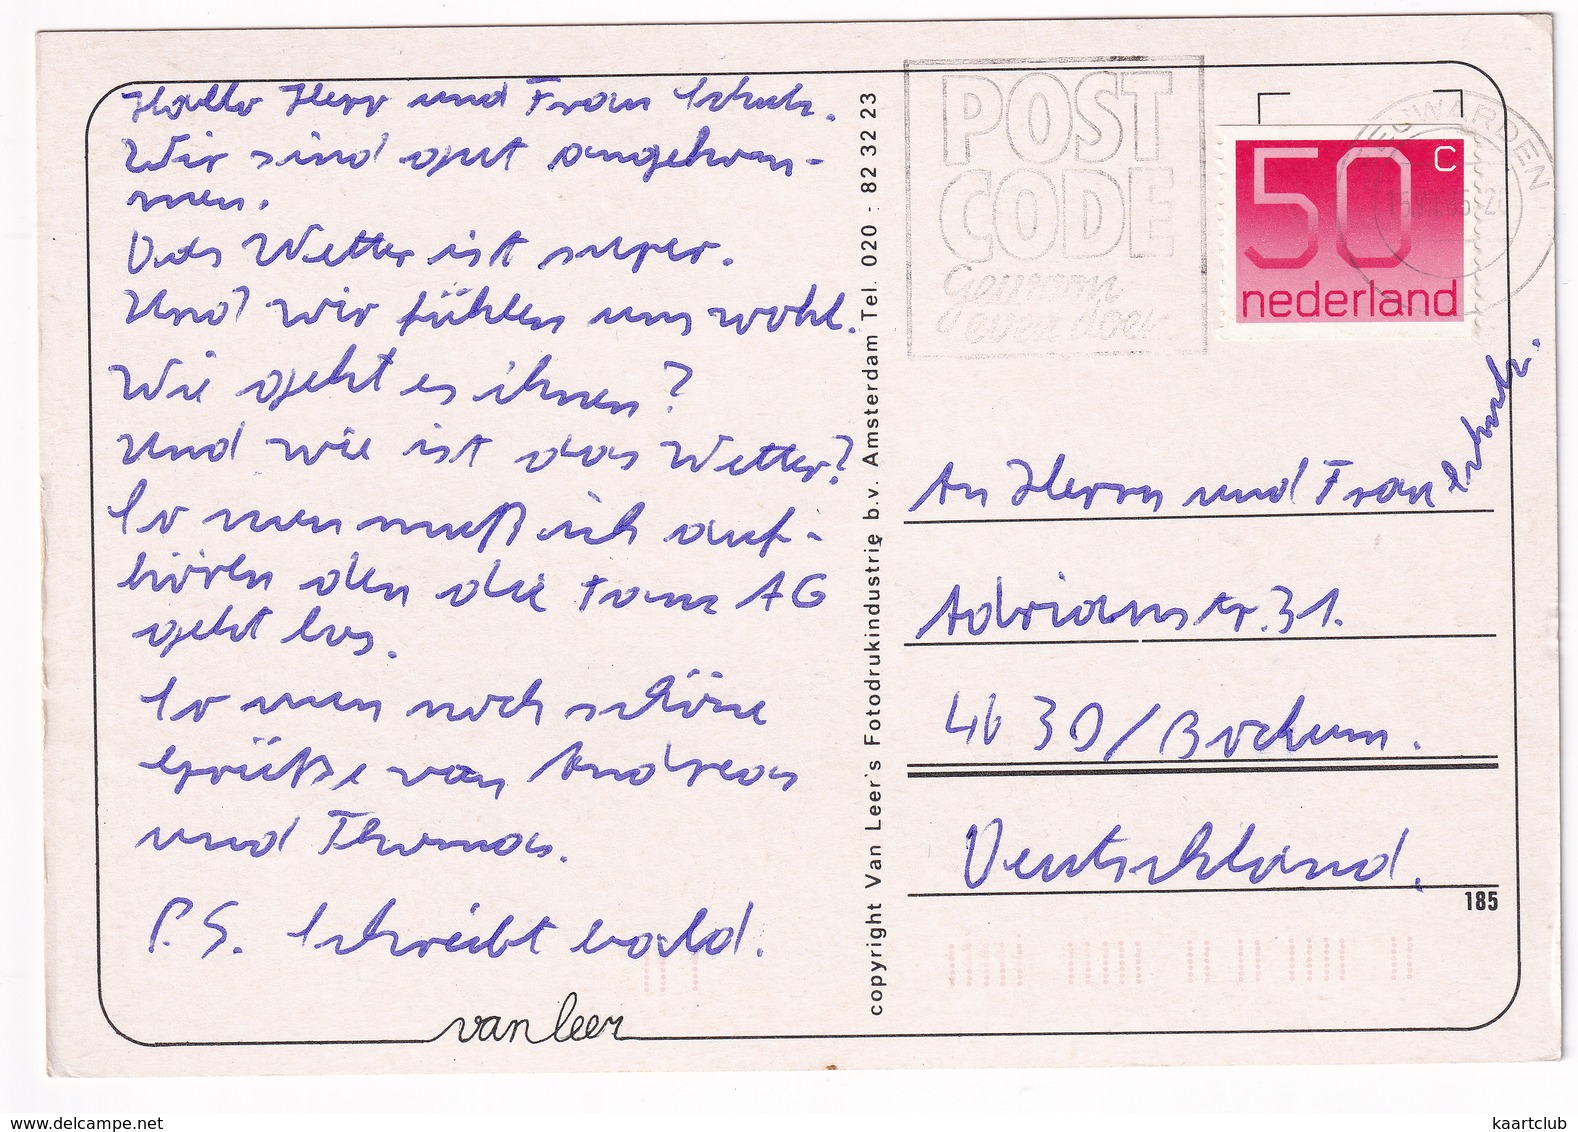 Hallo Herr und Frau Schulz.
Wir sind gut angekom-
men.
Das Wetter ist super.
Und wir fühlen uns wohl.
Wie geht es ihnen?
Und wie ist das Wetter?
So nun muß ich auf-
hören den die Tanz AG
geht los.
So nun noch schöne
Grüße von Andreas
und Thomas.
P.S. Schreibt bald.
van leer
copyright Van Leer's Fotodrukindustrie b.v. Amsterdam Tel. 020 - 82 32 23
POST
CODE
Gewoon
even doen.
LEEUWARDEN
50 c
nederland
An Herrn und Frau Schulz.
Adrianstr. 31.
4630/Bochum.
Deutschland.
185
www.delcampe.net
kaartclub